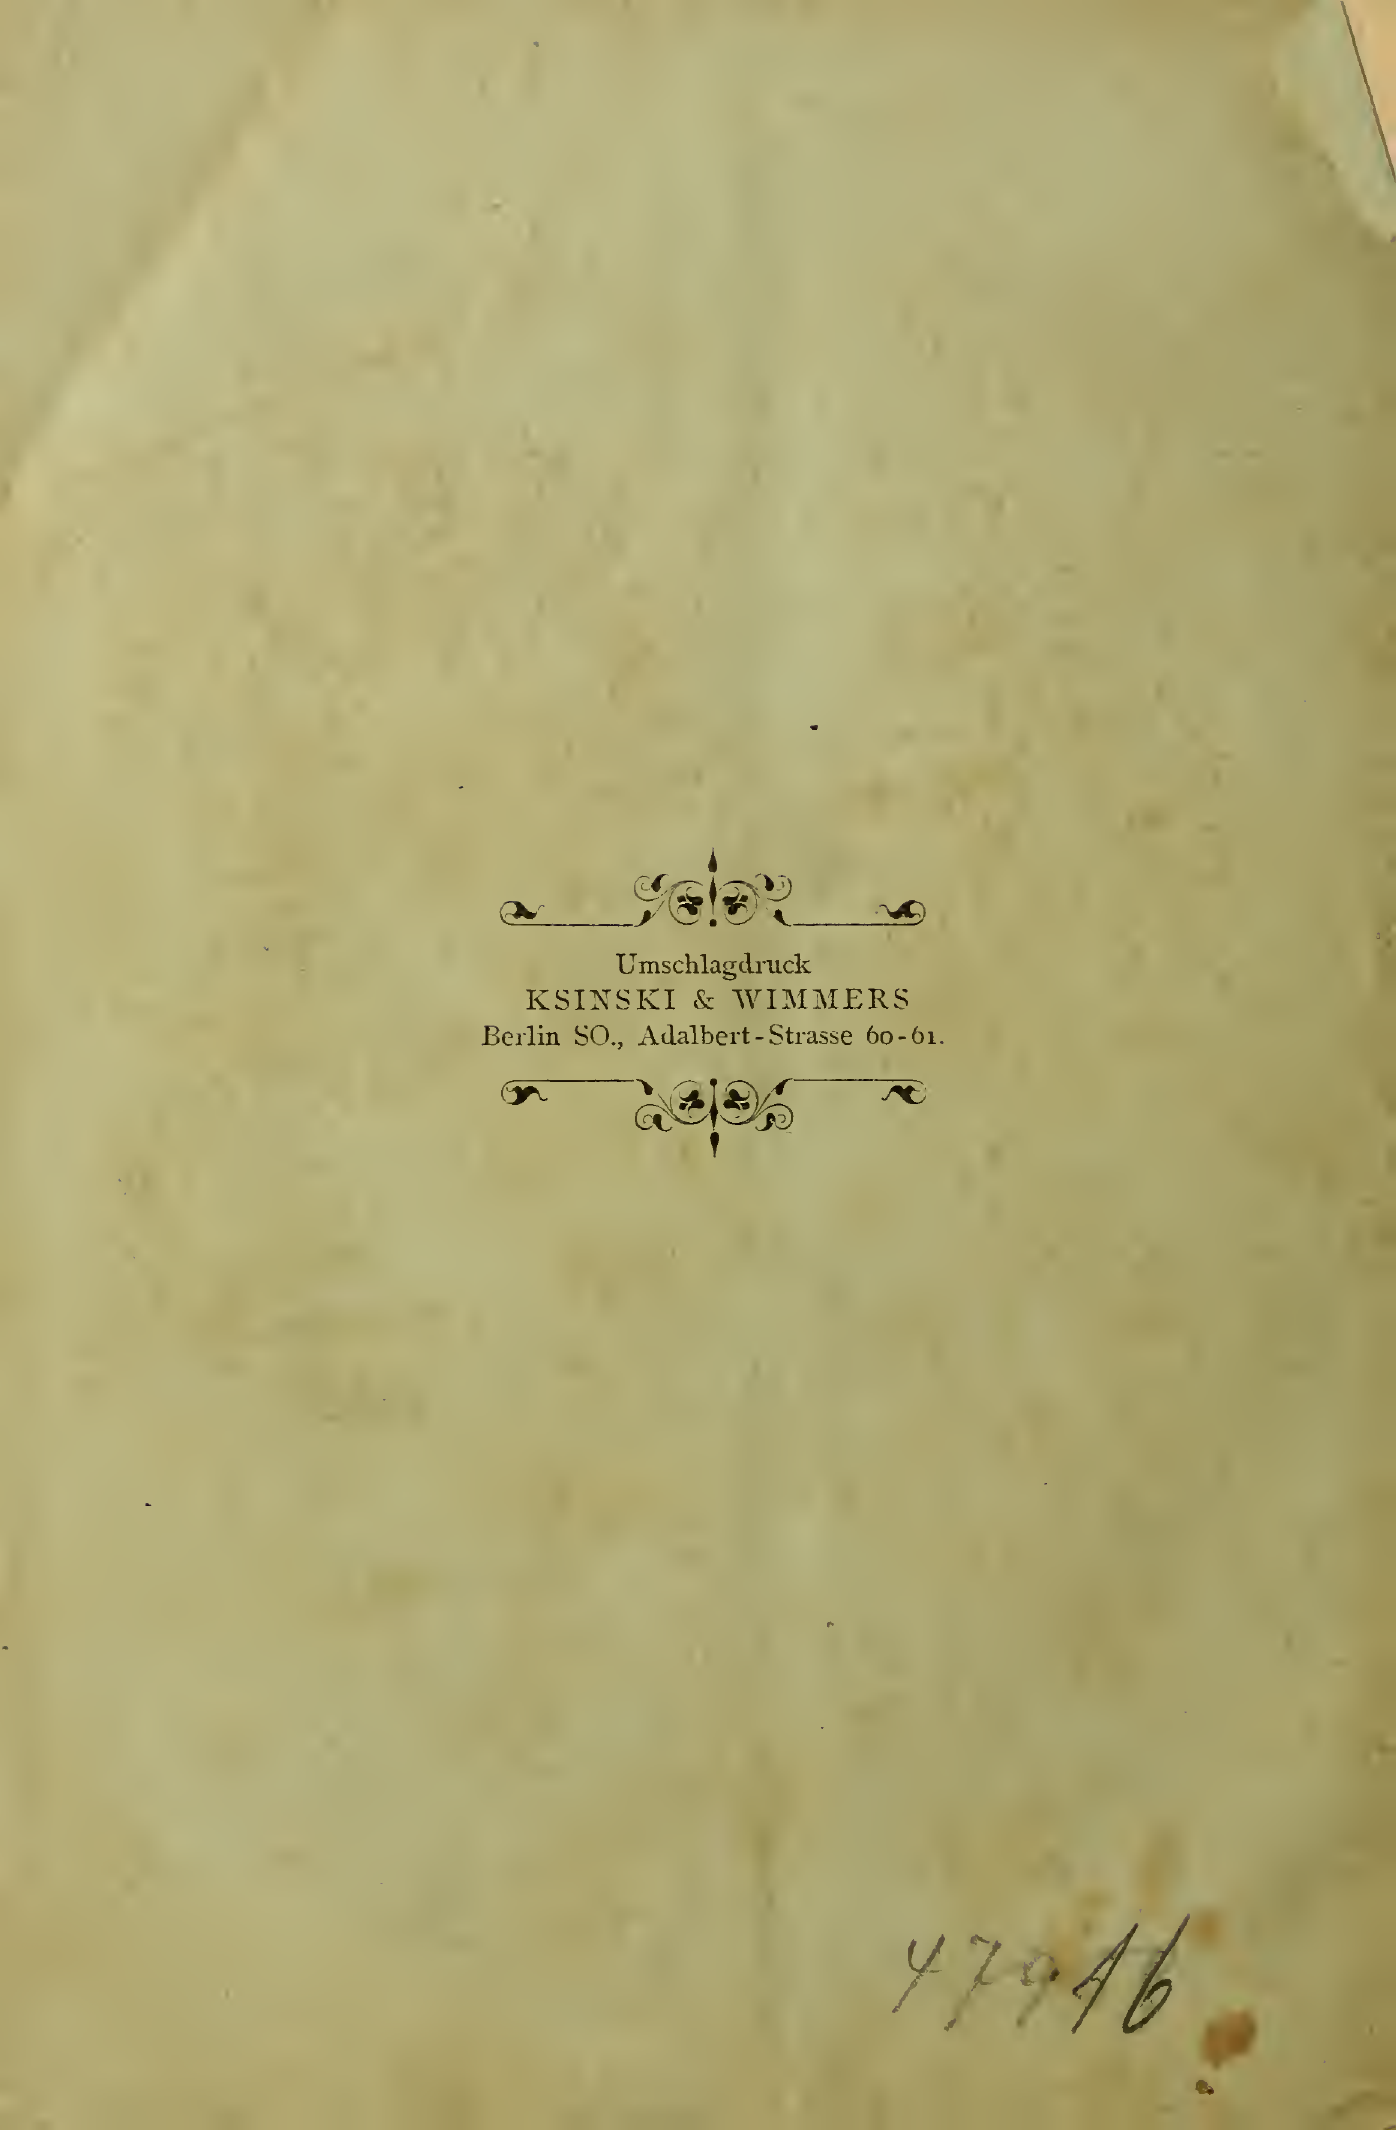 Umschlagdruck
KSINSKI & WIMMERS
Berlin SO., Adalbert-Strasse 60-61.
47916